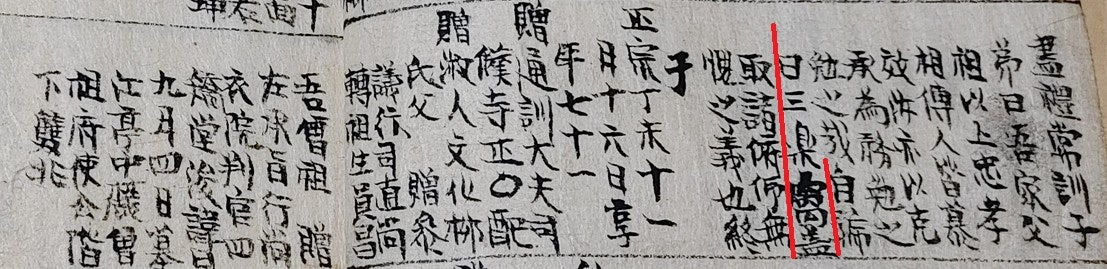 盡禮常訓子
弟曰吾家父
祖以上忠孝
相傳人皆慕
效汝亦以克
承為務勉之
勉之哉自號
曰三臬寓盖
取諸俯仰無
愧之義也終
于
正宗丁未十一
月十六日享
年七十一
贈通訓大夫司
僕寺正〇配
贈淑人文化柳
氏父 贈參
議行司直尚
轉祖生員昌
吾曾祖 贈
左承旨行尚
衣院判官四
矯堂浚諱
九月四日墓
江亭中磯曾
祖府使公階
下雙兆